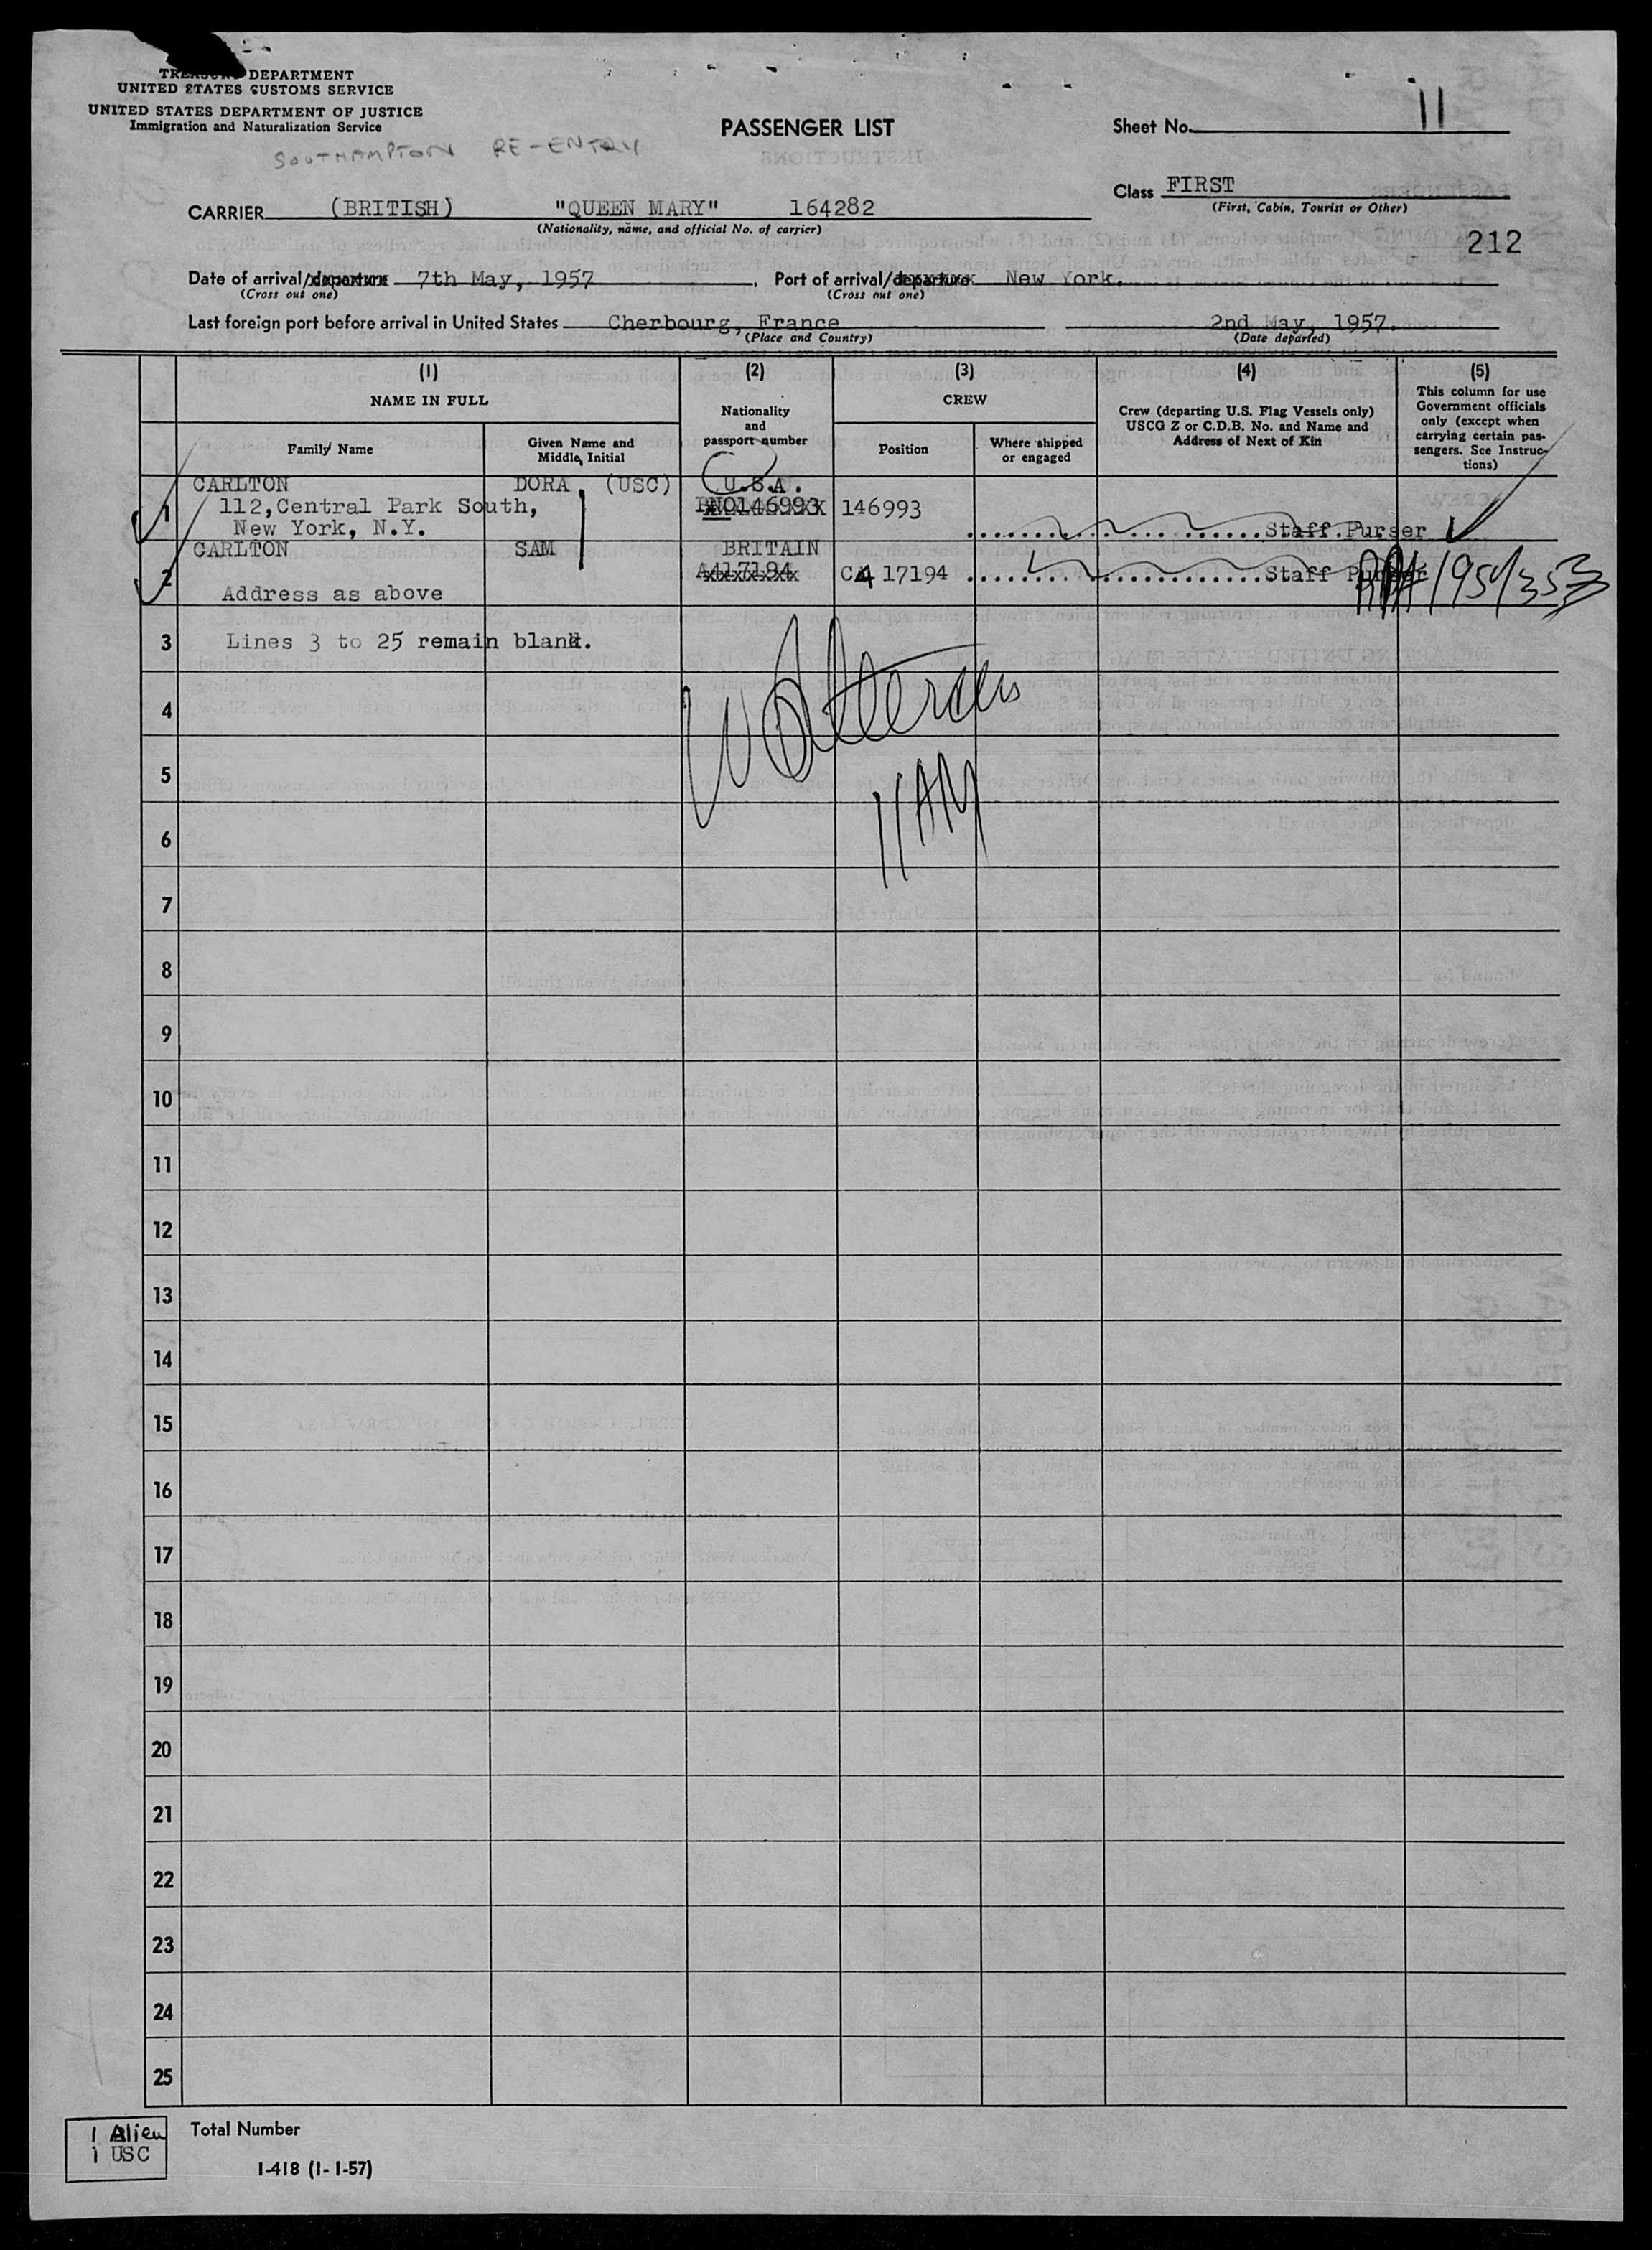 TREASURY DEPARTMENT
UNITED STATES CUSTOMS SERVICE
UNITED STATES DEPARTMENT OF JUSTICE
Immigration and Naturalization Service
SOUTHAMPTON RE-ENTRY
PASSENGER LIST
Sheet No. 11
Class FIRST
(First, Cabin, Tourist or Other)
CARRIER (BRITISH) "QUEEN MARY" 164282
(Nationality, name, and official No. of carrier)
212
Date of arrival/departure 7th May, 1957. Port of arrival/departure New York.
(Cross out one) (Cross out one)
Last foreign port before arrival in United States Cherbourg, France 2nd May, 1957.
(Place and Country) (Date departed)
(1)
NAME IN FULL
Family Name
Given Name and
Middle Initial
(2)
Nationality
and
passport number
(3)
CREW
Position
Where shipped
or engaged
(4)
Crew (departing U.S. Flag Vessels only)
USCG Z or C.D.B. No. and Name and
Address of Next of Kin
(5)
This column for use
Government officials
only (except when
carrying certain pas-
sengers. See Instruc-
tions)
CARLTON DORA (USC) U.S.A.
1 112,Central Park South, NO146993 146993
New York, N.Y. Staff Purser
CARLTON SAM BRITAIN
2 A417194 C417194 Staff Purser
Address as above
3 Lines 3 to 25 remain blank.
4
5
11AM
6
7
8
9
10
11
12
13
14
15
16
17
18
19
20
21
22
23
24
25
1 Alien
1 USC
Total Number
I-418 (1-1-57)